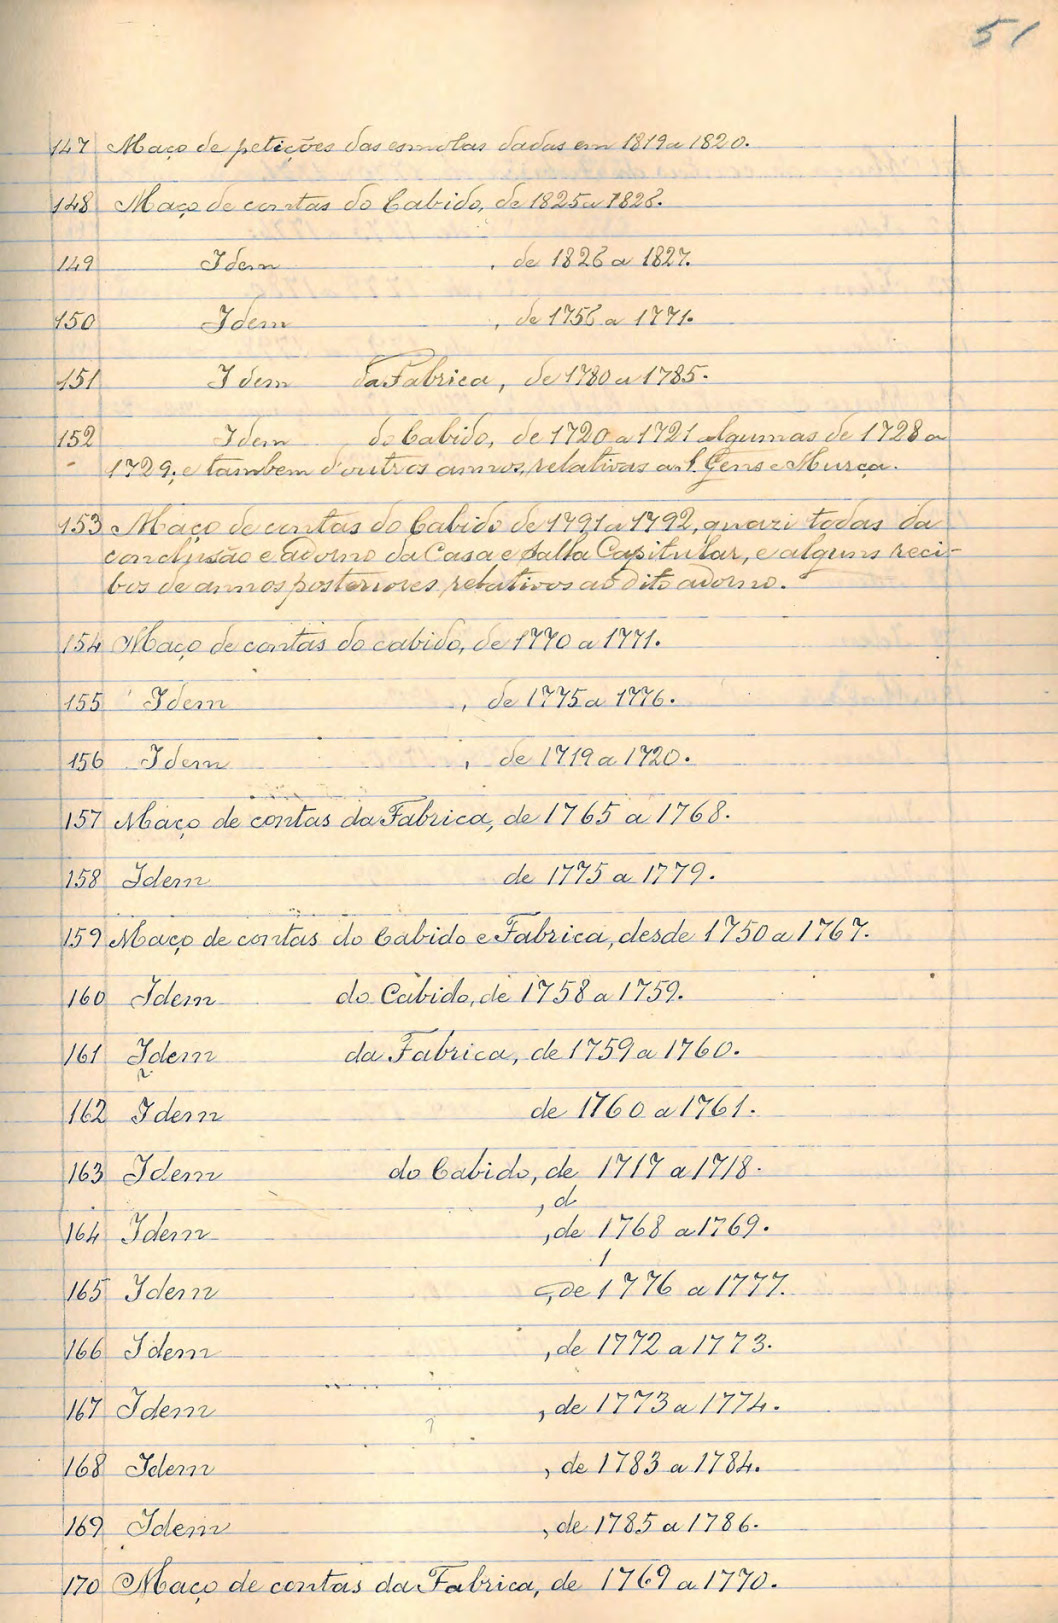 51
147 Maço de petições das esmolas dadas em 1819 a 1820.
148 Maço de contas do Cabido, de 1825 a 1826.
149 Idem , de 1826 a 1827.
150 Idem , de 1756 a 1771.
151 Idem da Fabrica, de 1780 a 1785.
152 Idem do Cabido, de 1720 a 1721 algumas de 1728 a
1729; e tambem d'outros annos, relativas a S. Gens e Murça.
153 Maço de contas do Cabido de 1791 a 1792, quazi todas da
conclusão e adorno da Casa e Salla Capitular, e alguns reci-
bos de annos posteriores, relativos ao dito adorno.
154 Maço de contas do cabido, de 1770 a 1771.
155 Idem , de 1775 a 1776.
156 Idem , de 1719 a 1720.
157 Maço de contas da Fabrica, de 1765 a 1768.
158 Idem de 1775 a 1779.
159 Maço de contas do Cabido e Fabrica, desde 1750 a 1767.
160 Idem do Cabido, de 1758 a 1759.
161 Idem da Fabrica, de 1759 a 1760.
162 Idem de 1760 a 1761.
163 Idem do Cabido, de 1717 a 1718.
, d
164 Idem , de 1768 a 1769.
165 Idem , de 1776 a 1777.
166 Idem , de 1772 a 1773.
167 Idem , de 1773 a 1774.
168 Idem , de 1783 a 1784.
169 Idem , de 1785 a 1786.
170 Maço de contas da Fabrica, de 1769 a 1770.